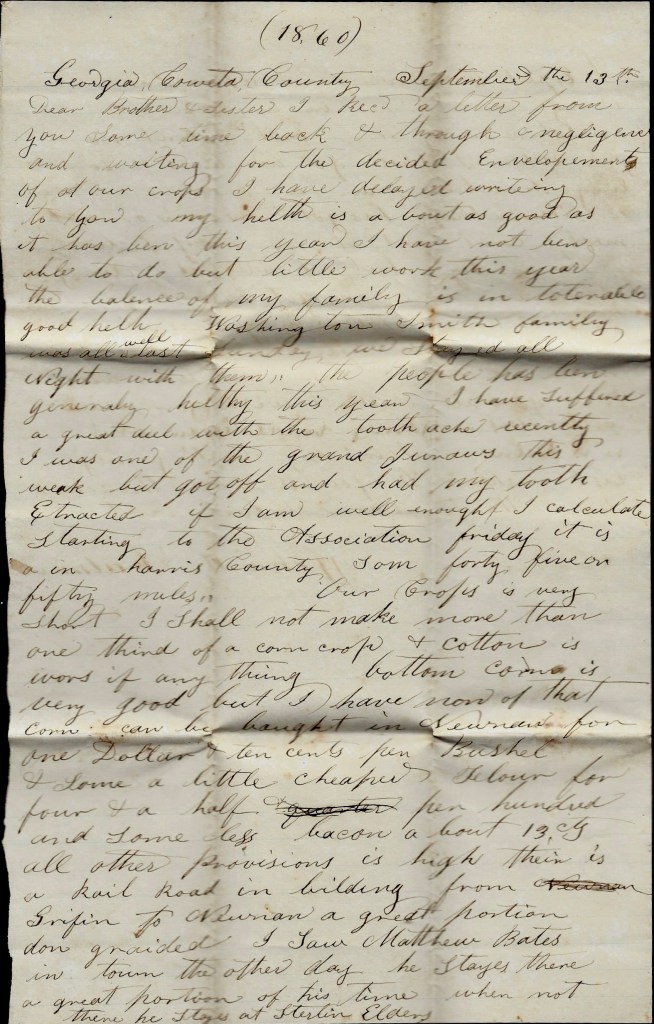 (1860)
Georgia, Coweta County September the 13th
Dear Brother & Sister I Recd a letter from
you Some time back & through negligence
and waiting for the decided Envelopements
of of our crops I have delayed writing
to you my helth is a bout as good as
it has ben this year I have not ben
able to do but little work this year
the balence of my family is in tolerable
good helth Washington Smith family
was all well last Sunday we Stayed all
Night with them,, the people has ben
generaly helthy this year I have Suffered
a great deel with the tooth ache recently
I was one of the grand Juraws this
weak but got off and had my tooth
Extracted if I am well enough I calculate
Starting to the Association friday it is
a in harris County Som forty five or
fifty miles,, Our Crops is very
Short I Shall not make more than
one third of a corn crop & cotton is
wors if any thing bottom corn is
very good but I have non of that
corn can be bought in Newnan for
one Dollar & ten cents per Bushel
& Some a little cheaper Flour for
four & a half quarter per hundred
and Some less bacon a bout 13 cts
all other provisions is high their is
a Rail Road in bilding from Newnan
Grifin to Newnan a great portion
don graided I Saw Matthew Bates
in town the other day he Stayes there
a great portion of his time when not
there he Stays at Sterlin Elders